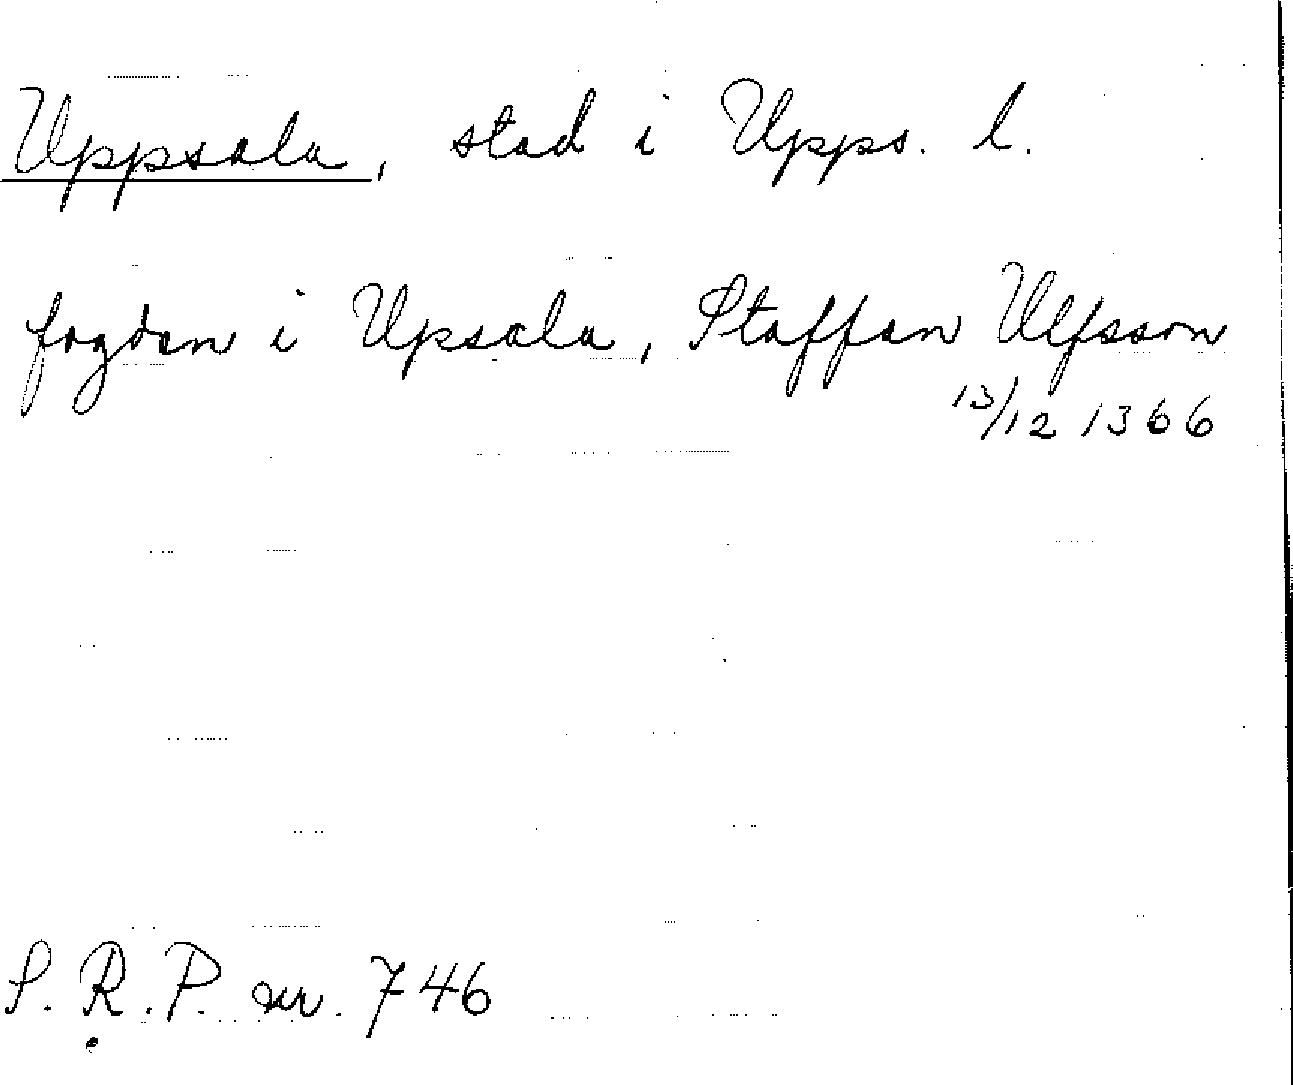 Uppsala, stad i Upps. l.
fogdan i Upsala, Staffan Ulfsson
13/12 1366
S. R. P. nr. 746